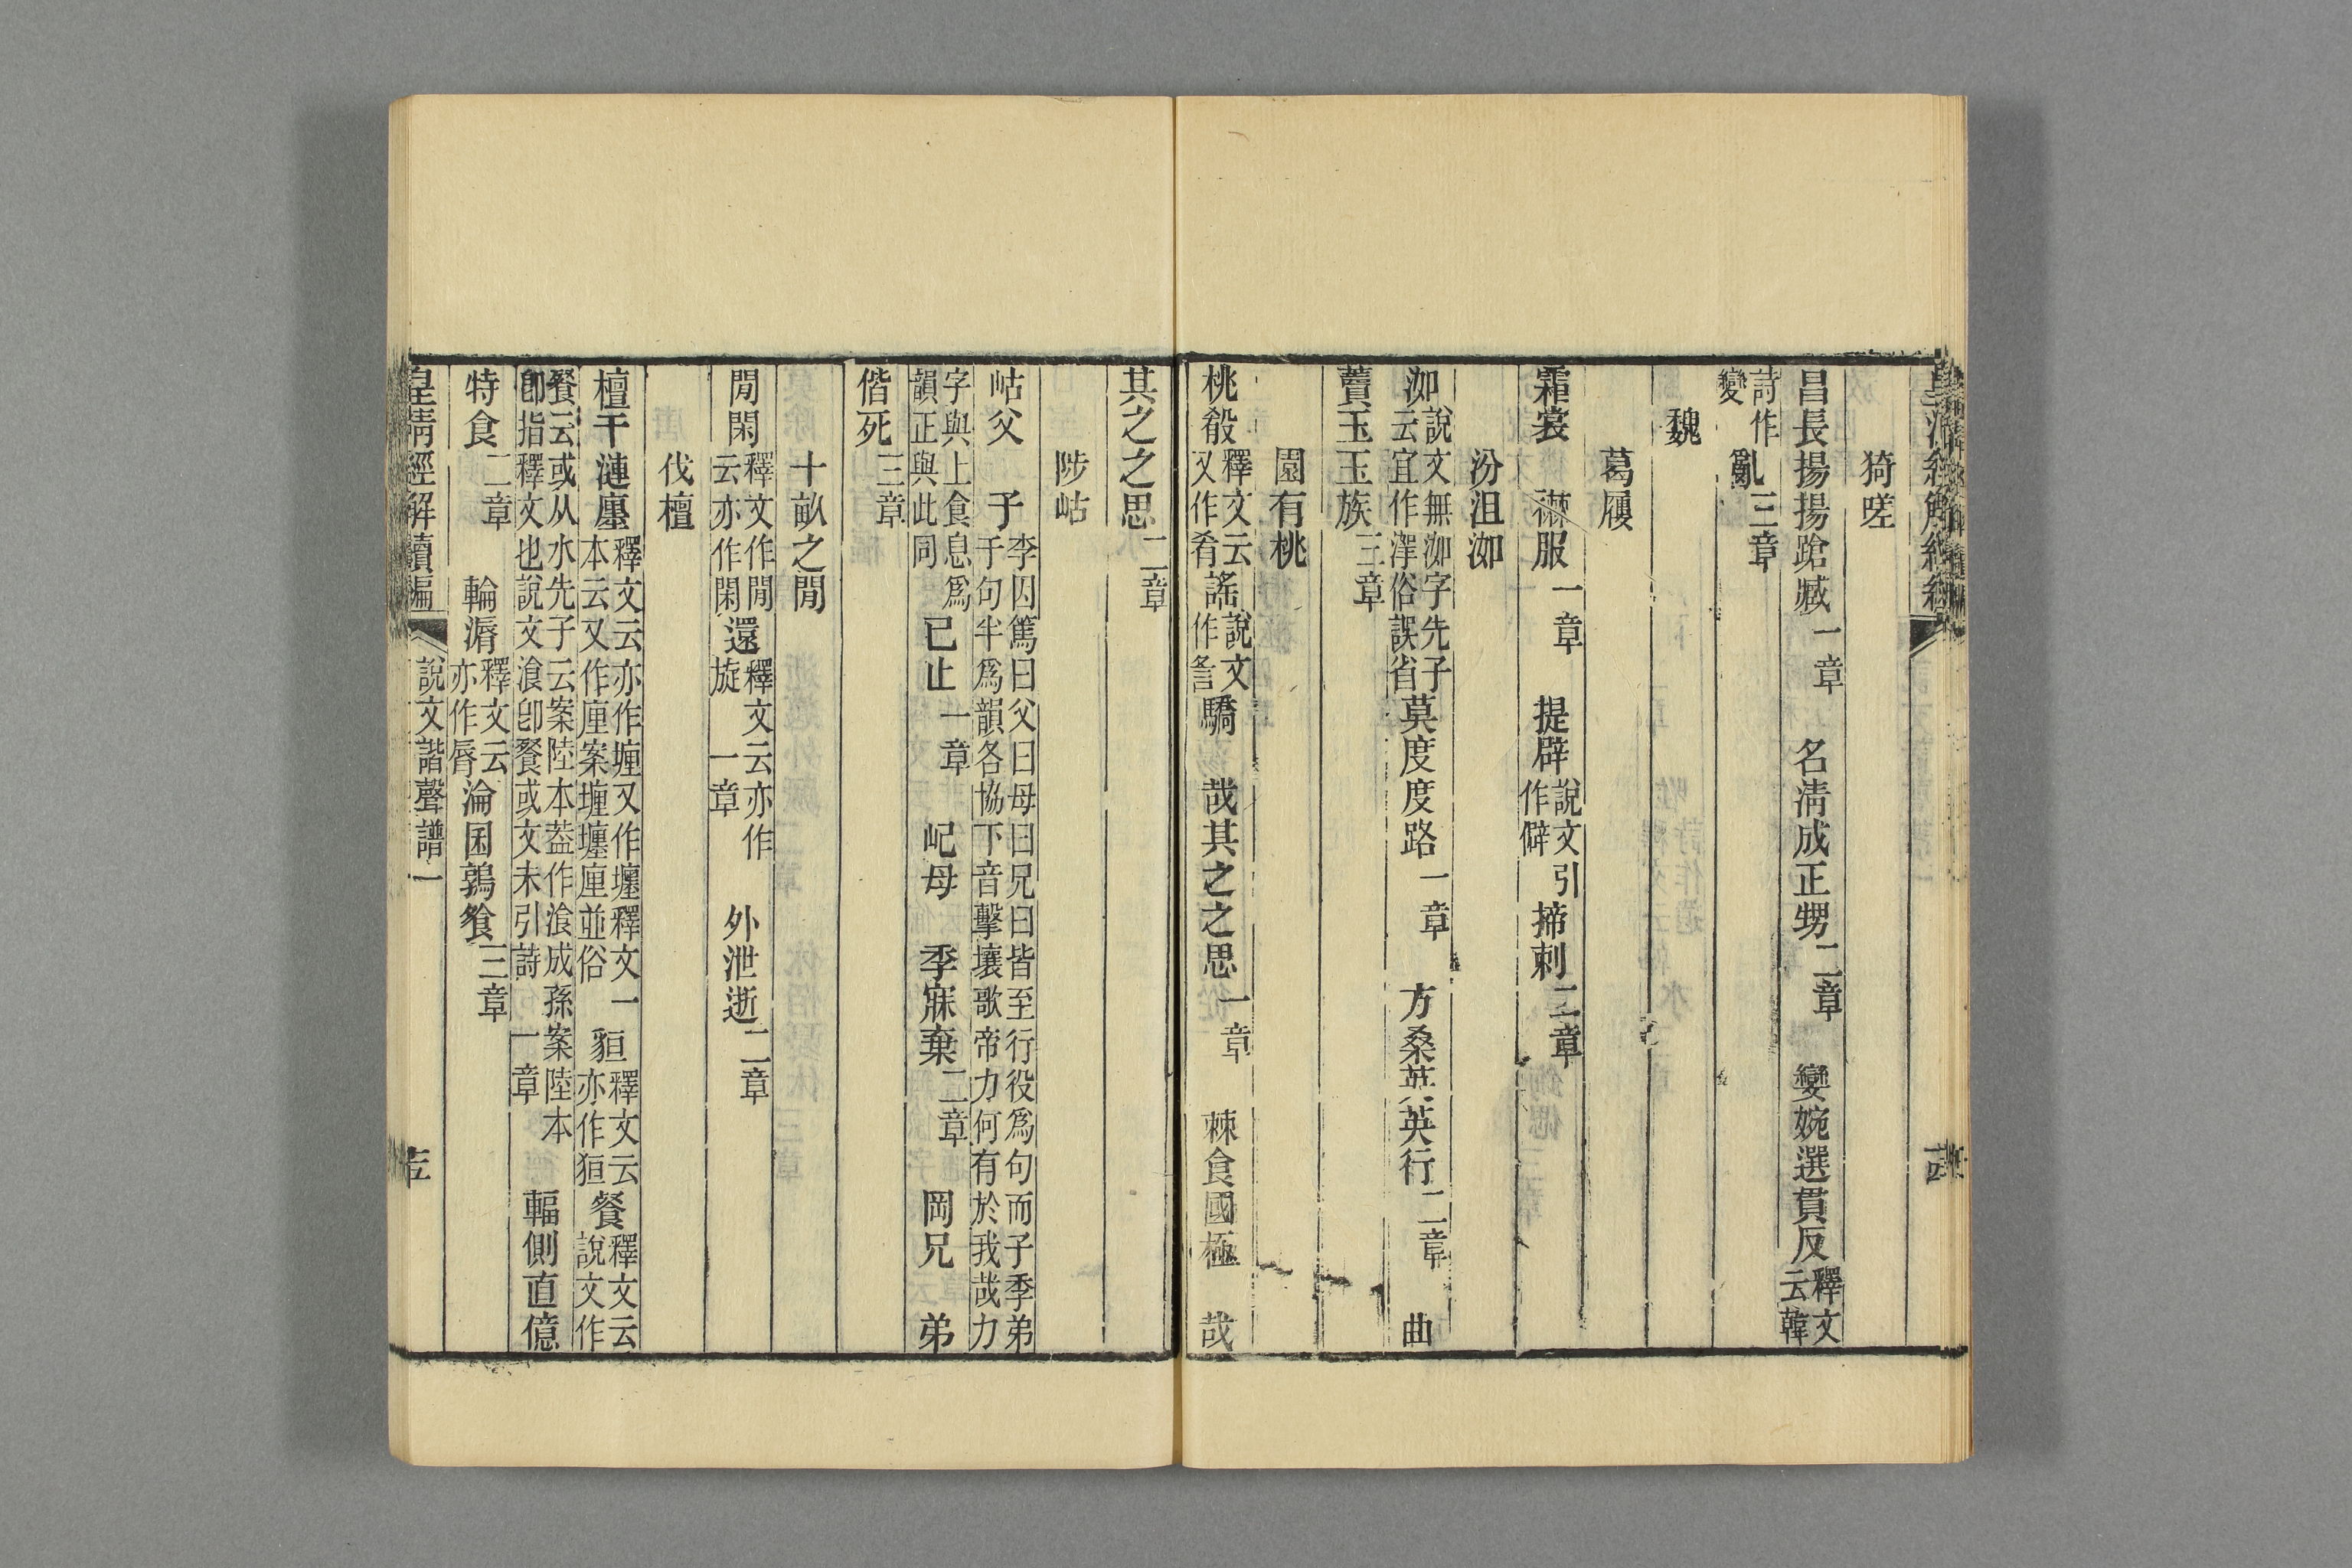 猗嗟
昌長揚揚蹌臧一章　名清成正甥二章　孌婉選貫反釋文云韓
詩作變　亂三章
魏
葛屨
霜裳　襋服一章　提辟說文引作僻　揥刺二章
汾沮洳
洳說文無洳字先子云宜作澤俗誤省　莫度度路一章　方桑英英行二章　曲
藚玉玉族三章
園有桃
桃殽釋文云又作肴　謠說文作䚻　驕　哉其之之思一章　棘食國極　哉
其之之思二章
陟岵
岵父　子李因篤曰父曰母曰兄曰皆至行役爲句而子季弟于句半爲韻各協下音擊壤歌帝力何有於我哉力
字與上食息爲韻正與此同　已止一章　屺母　季寐棄二章　岡兄　弟
偕死三章
十畝之閒
閒閑釋文作閒云亦作閑　還釋文云亦作旋　一章　外泄逝二章
伐檀
檀干漣廛釋文云亦作㕓又作壥釋文一本云又作厘案㕓壥厘並俗　貆釋文云亦作狟　餐釋文云說文作
餐云或从水先子云案陸本葢作湌成孫案陸本卽指釋文也說文湌卽餐或文未引詩　一章　輻側直億
特食二章　輪漘釋文云亦作脣　淪囷鶉飧三章
皇清經解續編　說文諧聲譜一　十五